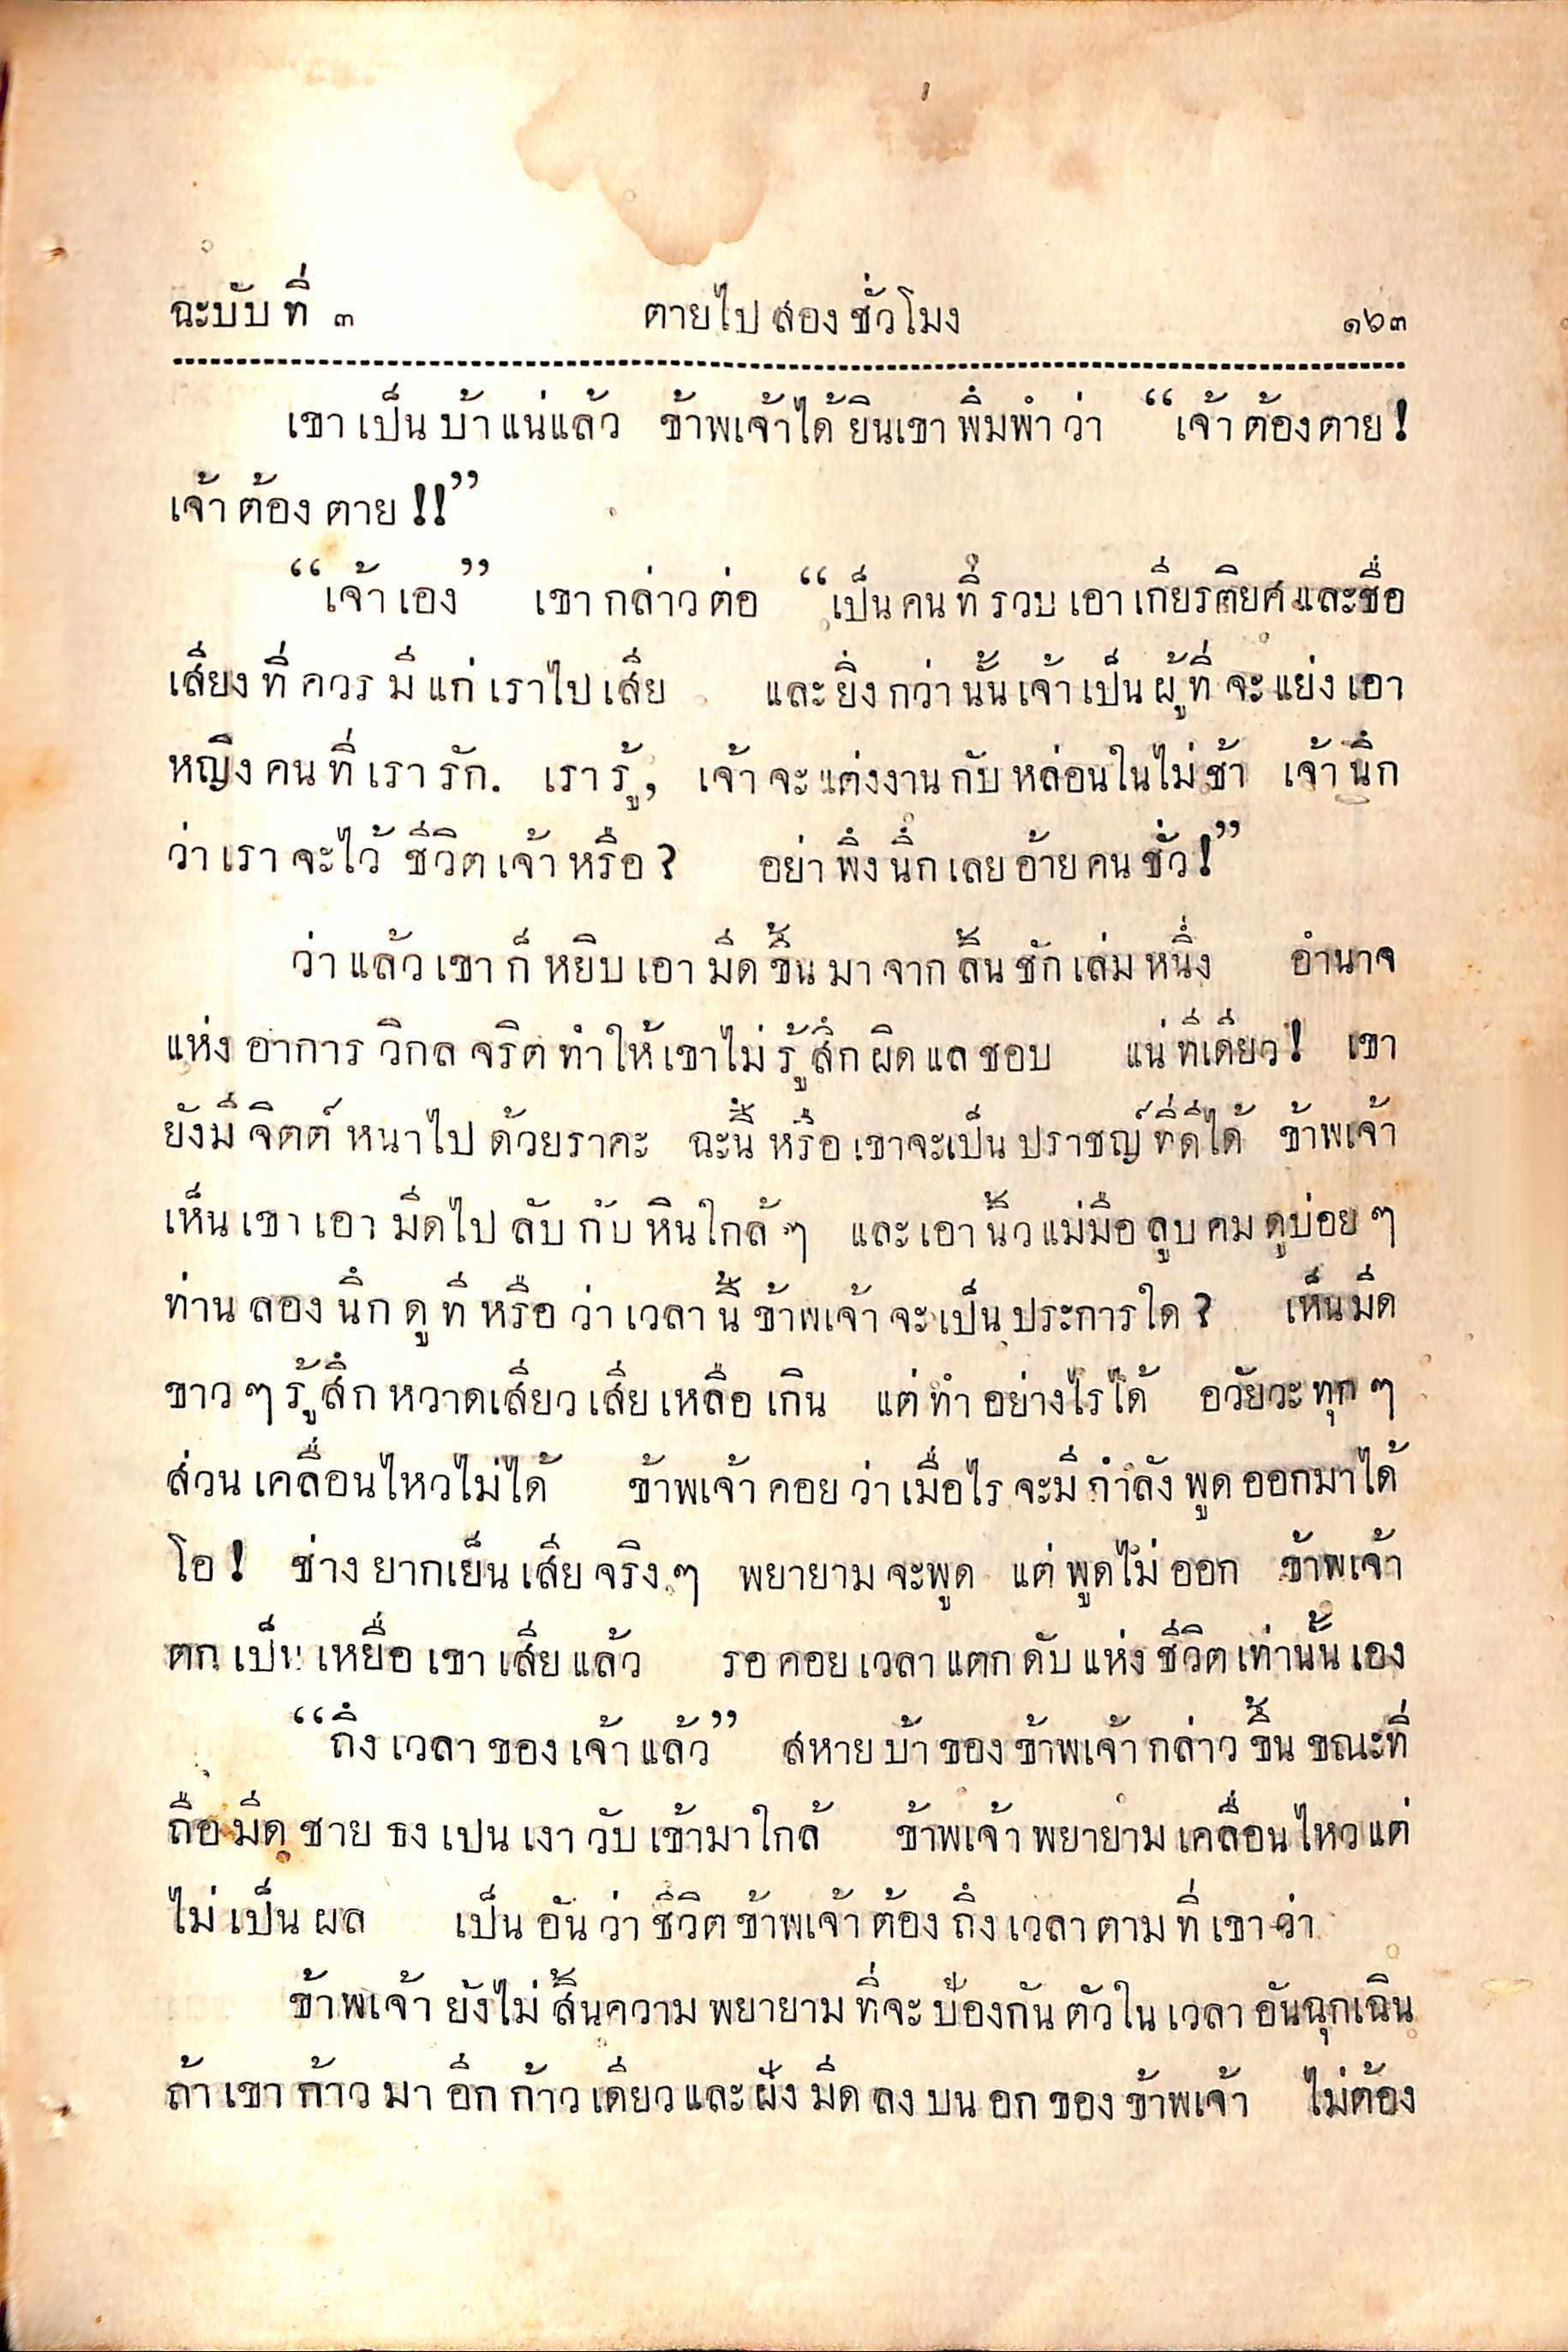 ฉะบับที่ ๓ ตายไปสองชั่วโมง ๑๖๓
เขาเป็นบ้าแน่แล้ว ข้าพเจ้าได้ยินเขาพึมพำว่า “เจ้าต้องตาย!
เจ้าต้องตาย!!”
“เจ้าเอง” เขากล่าวต่อ “เป็นคนที่รวบเอาเกียรติยศและชื่อ
เสียงที่ควรมีแก่เราไปเสีย และยิ่งกว่านั้นเจ้าเป็นผู้ที่จะแย่งเอา
หญิงคนที่เรารัก. เรารู้, เจ้าจะแต่งงานกับหล่อนในไม่ช้า เจ้านึก
ว่าเราจะไว้ชีวิตเจ้าหรือ? อย่าพึงนึกเลยอ้ายคนชั่ว!”
ว่าแล้วเขาก็หยิบเอามีดขึ้นมาจากลิ้นชักเล่มหนึ่ง อำนาจ
แห่งอาการวิกลจริตทำให้เขาไม่รู้สึกผิดแลชอบ แน่ทีเดียว! เขา
ยังมีจิตต์หนาไปด้วยราคะ ฉะนี้หรือเขาจะเป็นปราชญ์ที่ดีได้ ข้าพเจ้า
เห็นเขาเอามีดไปลับกับหินใกล้ๆ และเอานิ้วแม่มือลูบคมดูบ่อยๆ
ท่านลองนึกดูทีหรือว่าเวลานี้ข้าพเจ้าจะเป็นประการใด? เห็นมีด
ขาวๆรู้สึกหวาดเสียวเสียเหลือเกิน แต่ทำอย่างไรได้ อวัยวะทุกๆ
ส่วนเคลื่อนไหวไม่ได้ ข้าพเจ้าคอยว่าเมื่อไรจะมีกำลังพูดออกมาได้
โอ! ช่างยากเย็นเสียจริงๆ พยายามจะพูด แต่พูดไม่ออก ข้าพเจ้า
ตกเป็นเหยื่อเขาเสียแล้ว รอคอยเวลาแตกดับแห่งชีวิตเท่านั้นเอง
“ถึงเวลาของเจ้าแล้ว” สหายบ้าของข้าพเจ้ากล่าวขึ้นขณะที่
ถือมีดชายธงเปนเงาวับเข้ามาใกล้ ข้าพเจ้าพยายามเคลื่อนไหวแต่
ไม่เป็นผล เป็นอันว่าชีวิตข้าพเจ้าต้องถึงเวลาตามที่เขาว่า
ข้าพเจ้ายังไม่สิ้นความพยายามที่จะป้องกันตัวในเวลาอันฉุกเฉิน
ถ้าเขาก้าวมาอีกก้าวเดียวและฝังมีดลงบนอกของข้าพเจ้า ไม่ต้อง